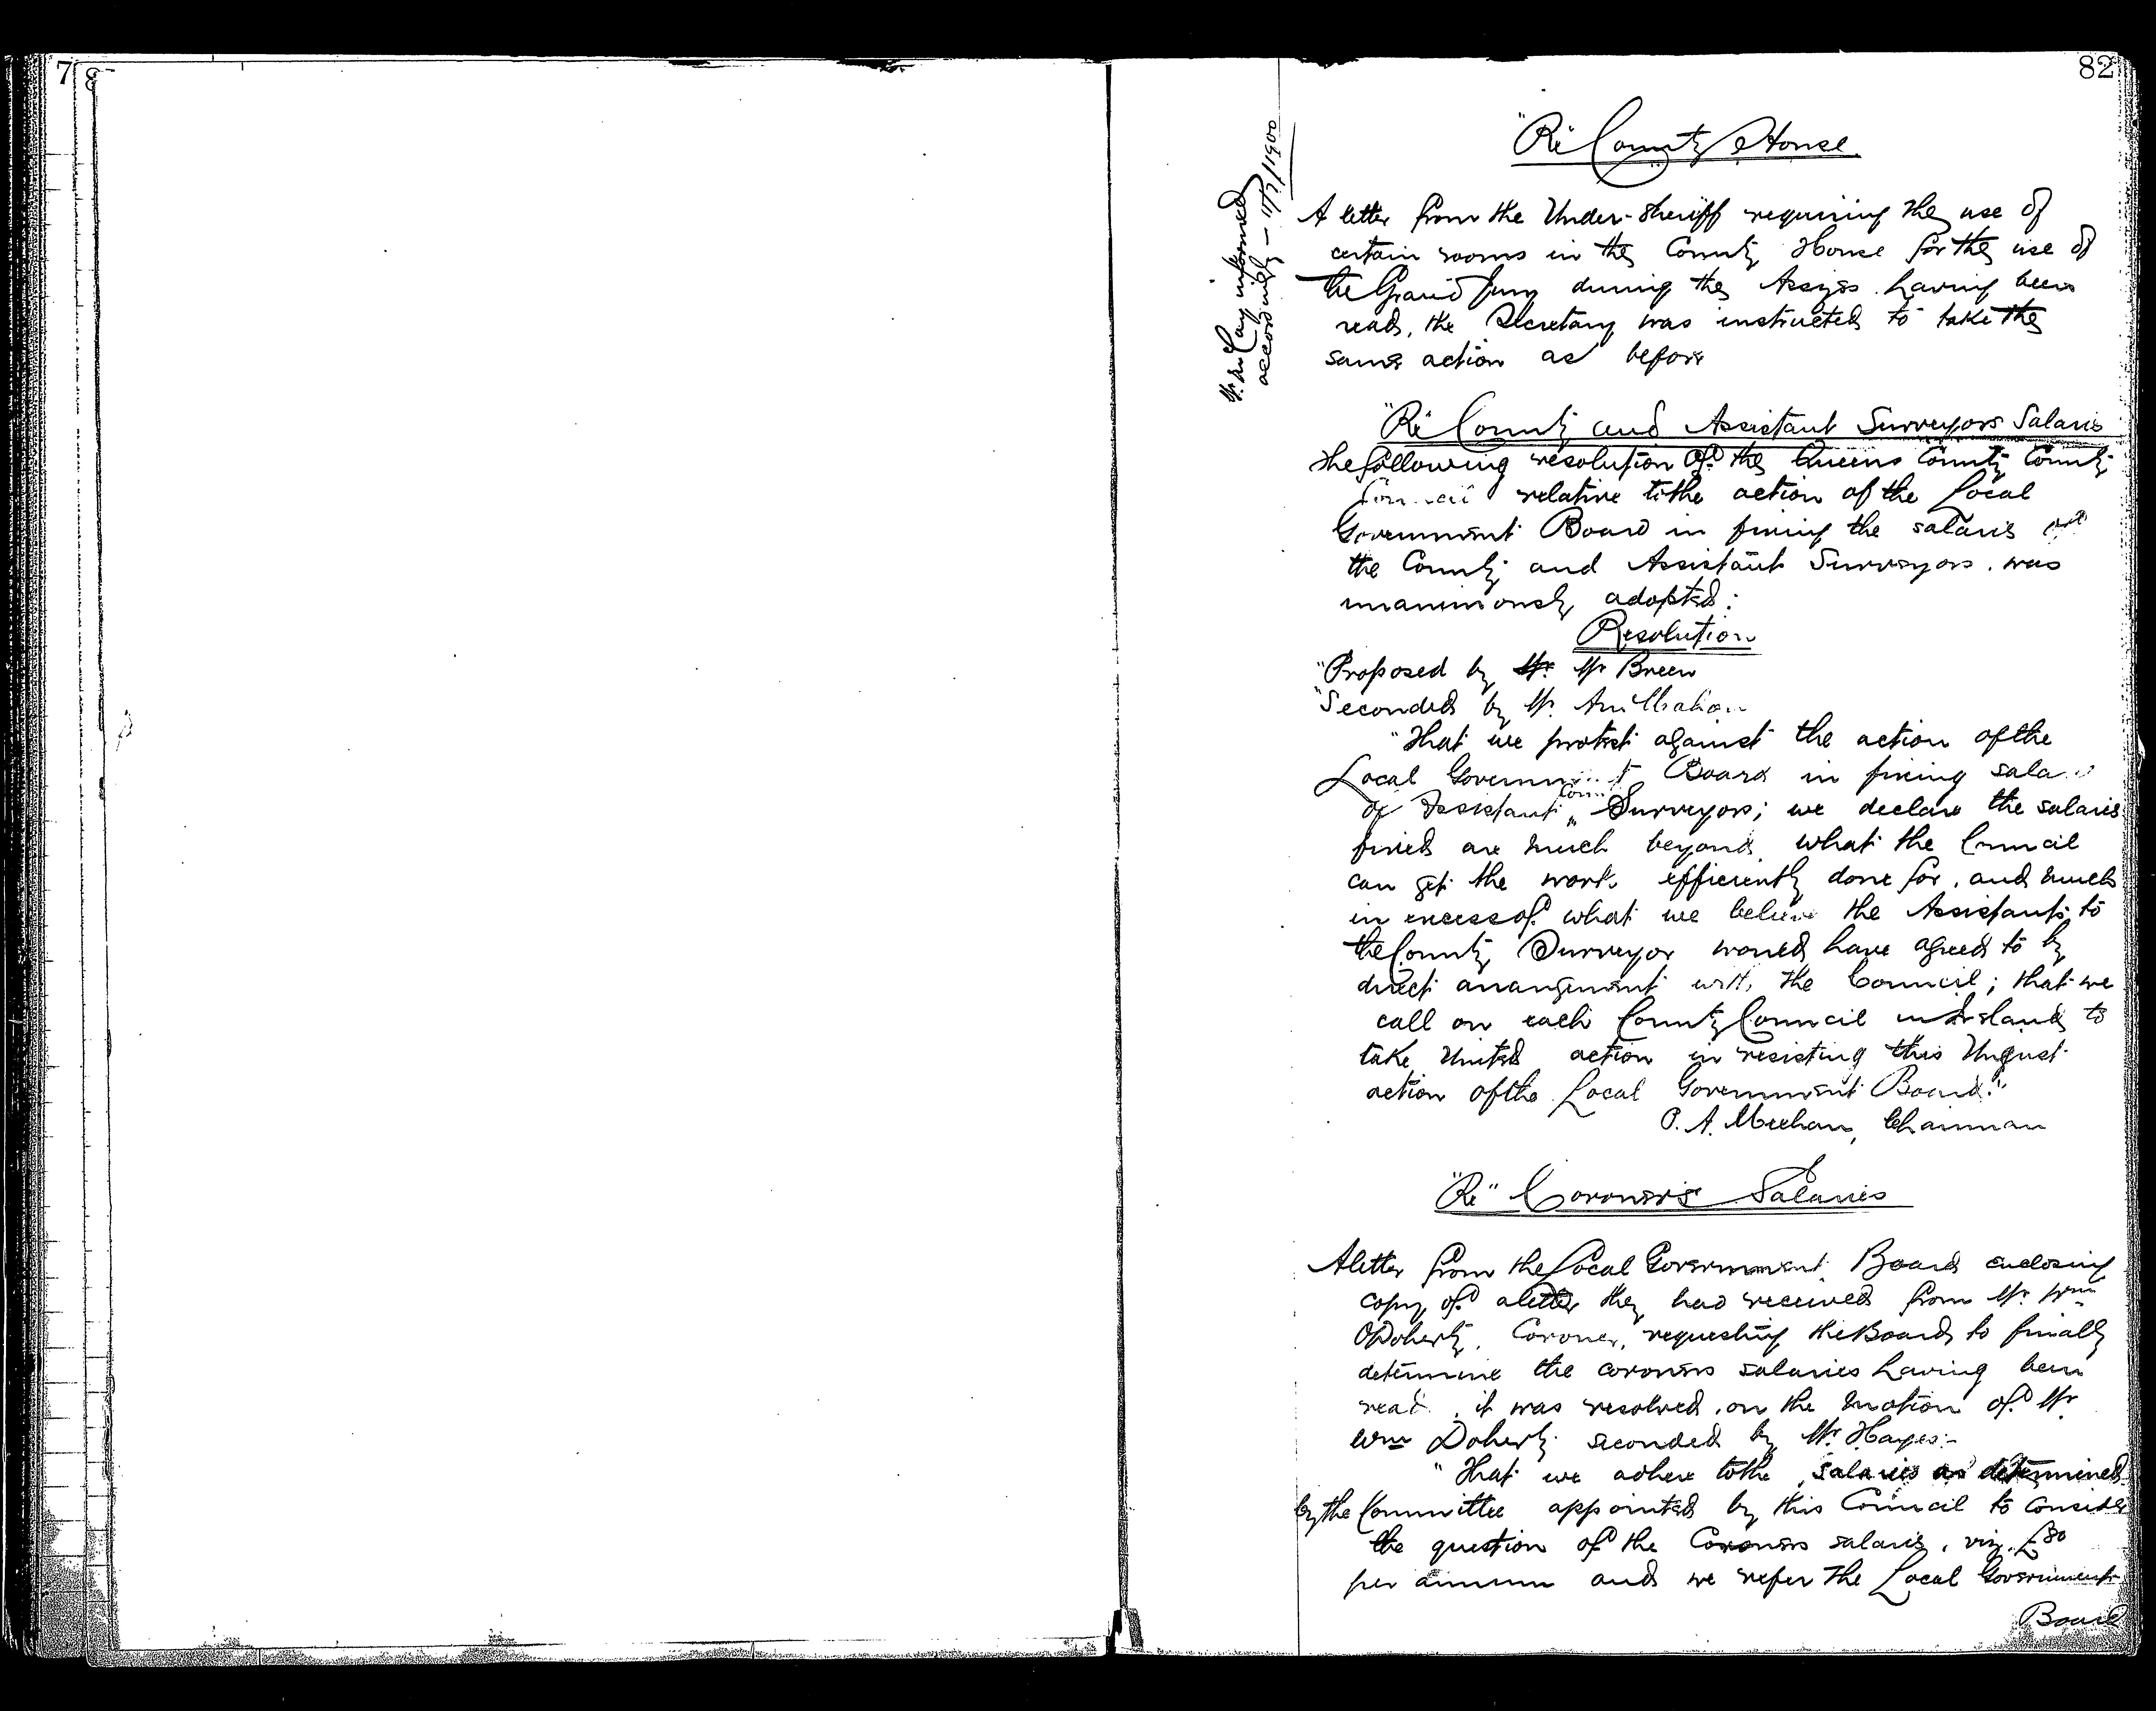 82
"Re" County House.
Mr McCay informed
accordingly — 17/2/1900
A letter from the Under-Sheriff requiring the use of
certain rooms in the County House for the use of
the Grand Jury during the Assizes having been
read, the Secretary was instructed to take the
same action as before
"Re" County and Assistant Surveyors Salaries
The following resolution of the Queens County County
Council relative to the action of the Local
Government Board in fixing the salaries of
the County and Assistant Surveyors. was
unanimously adopted:
Resolution
"Proposed by Mr. Mr Breen
"Seconded by Mr.
"That we protest against the action of the
Local Government Board in fixing
of Assistant County Surveyors; we declare the salaries
fixed are much beyond what the Council
can get the work efficiently done for, and much
in excess of what we believe the Assistants to
the County Surveyor would have agreed to by
direct arrangement with the Council; that we
call on each County Council in Ireland to
take United action in resisting this Unjust
action of the Local Government Board."
P. A. Meehan, Chairman
"Re" Coroner's Salaries
A letter from the Local Government Board enclosing
copy of a letter they had received from Mr. Wm
O'Doherty, Coroner, requesting the Board to finally
determine the coroners salaries having been
read, it was resolved, on the motion of Mr
Wm Doherty seconded by Mr. Hayes:-
"That we adhere to the salaries as determined
by the Committee appointed by this Council to consider
the question of the Coroners salaries, viz. £80
per annum and we refer the Local Government
Board